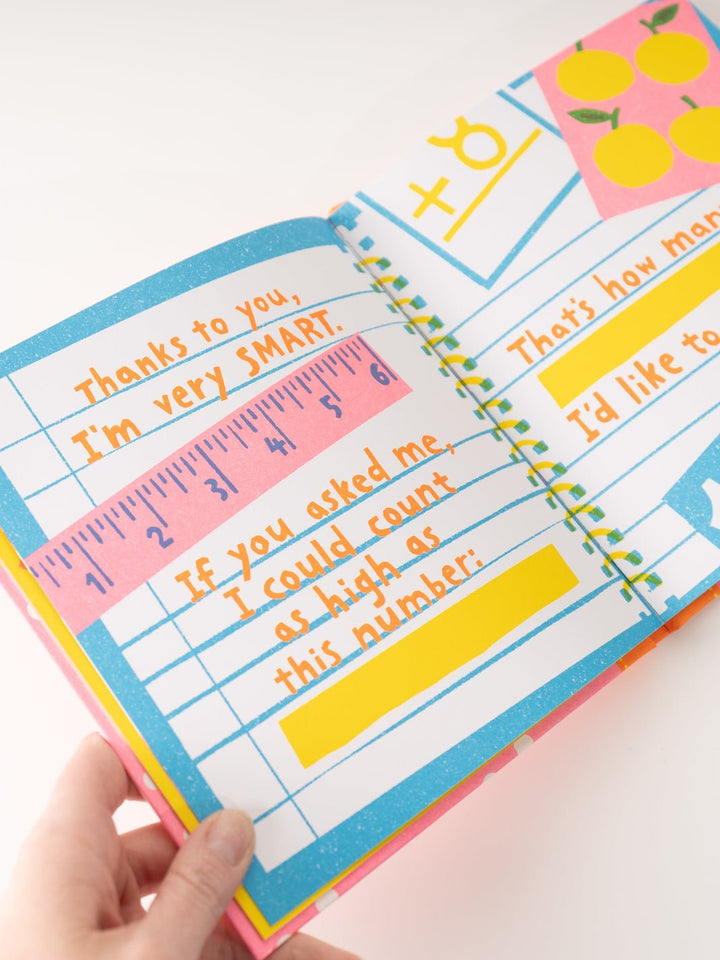 Thanks to you,
I'm very SMART.
1 2 3 4 5 6
If you asked me,
I could count
as high as
this number:
+8
That's how
I'd like to